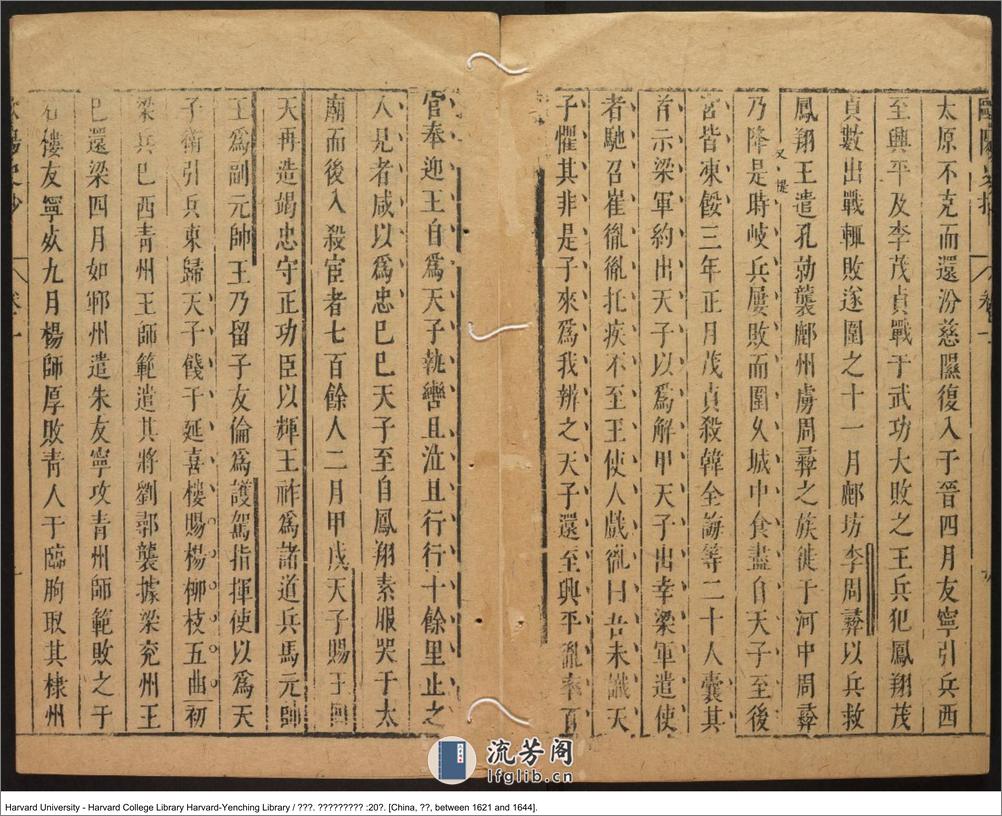 太原不克而還汾慈隰復入于晉四月友寧引兵西
至興平及李茂貞戰于武功大敗之王兵犯鳳翔茂
貞數出戰輒敗遂圍之十一月鄜坊李周彝以兵救
鳳翔王遣孔勍襲鄜州虜周彝之族徙于河中周彝
又提
乃降是時岐兵屢敗而圍久城中食盡自天子至後
宮皆凍餒三年正月茂貞殺韓全誨等二十人囊其
首示梁軍約出天子以為解甲天子出幸梁軍遣使
者馳召崔胤胤托疾不至王使人戲胤曰吾未識天
子懼其非是子來為我辨之天子還至興平胤率百
官奉迎王自為天子執轡且泣且行行十餘里止之
人見者咸以為忠己巳天子至自鳳翔素服哭于太
廟而後入殺宦者七百餘人二月甲戌天子賜王
天再造竭忠守正功臣以輝王祚為諸道兵馬元帥
王為副元帥王乃留子友倫為護駕指揮使以為天
子衛引兵東歸天子餞于延喜樓賜楊柳枝五曲初
梁兵已西青州王師範遣其將劉鄩襲據梁兗州王
已還梁四月如鄆州遣朱友寧攻青州師範敗之于
石樓友寧死九月楊師厚敗青人于臨朐取其棣州
流芳阁
lfglib.cn
Harvard University - Harvard College Library Harvard-Yenching Library / ???. ????????? :20?. [China, ??, between 1621 and 1644].